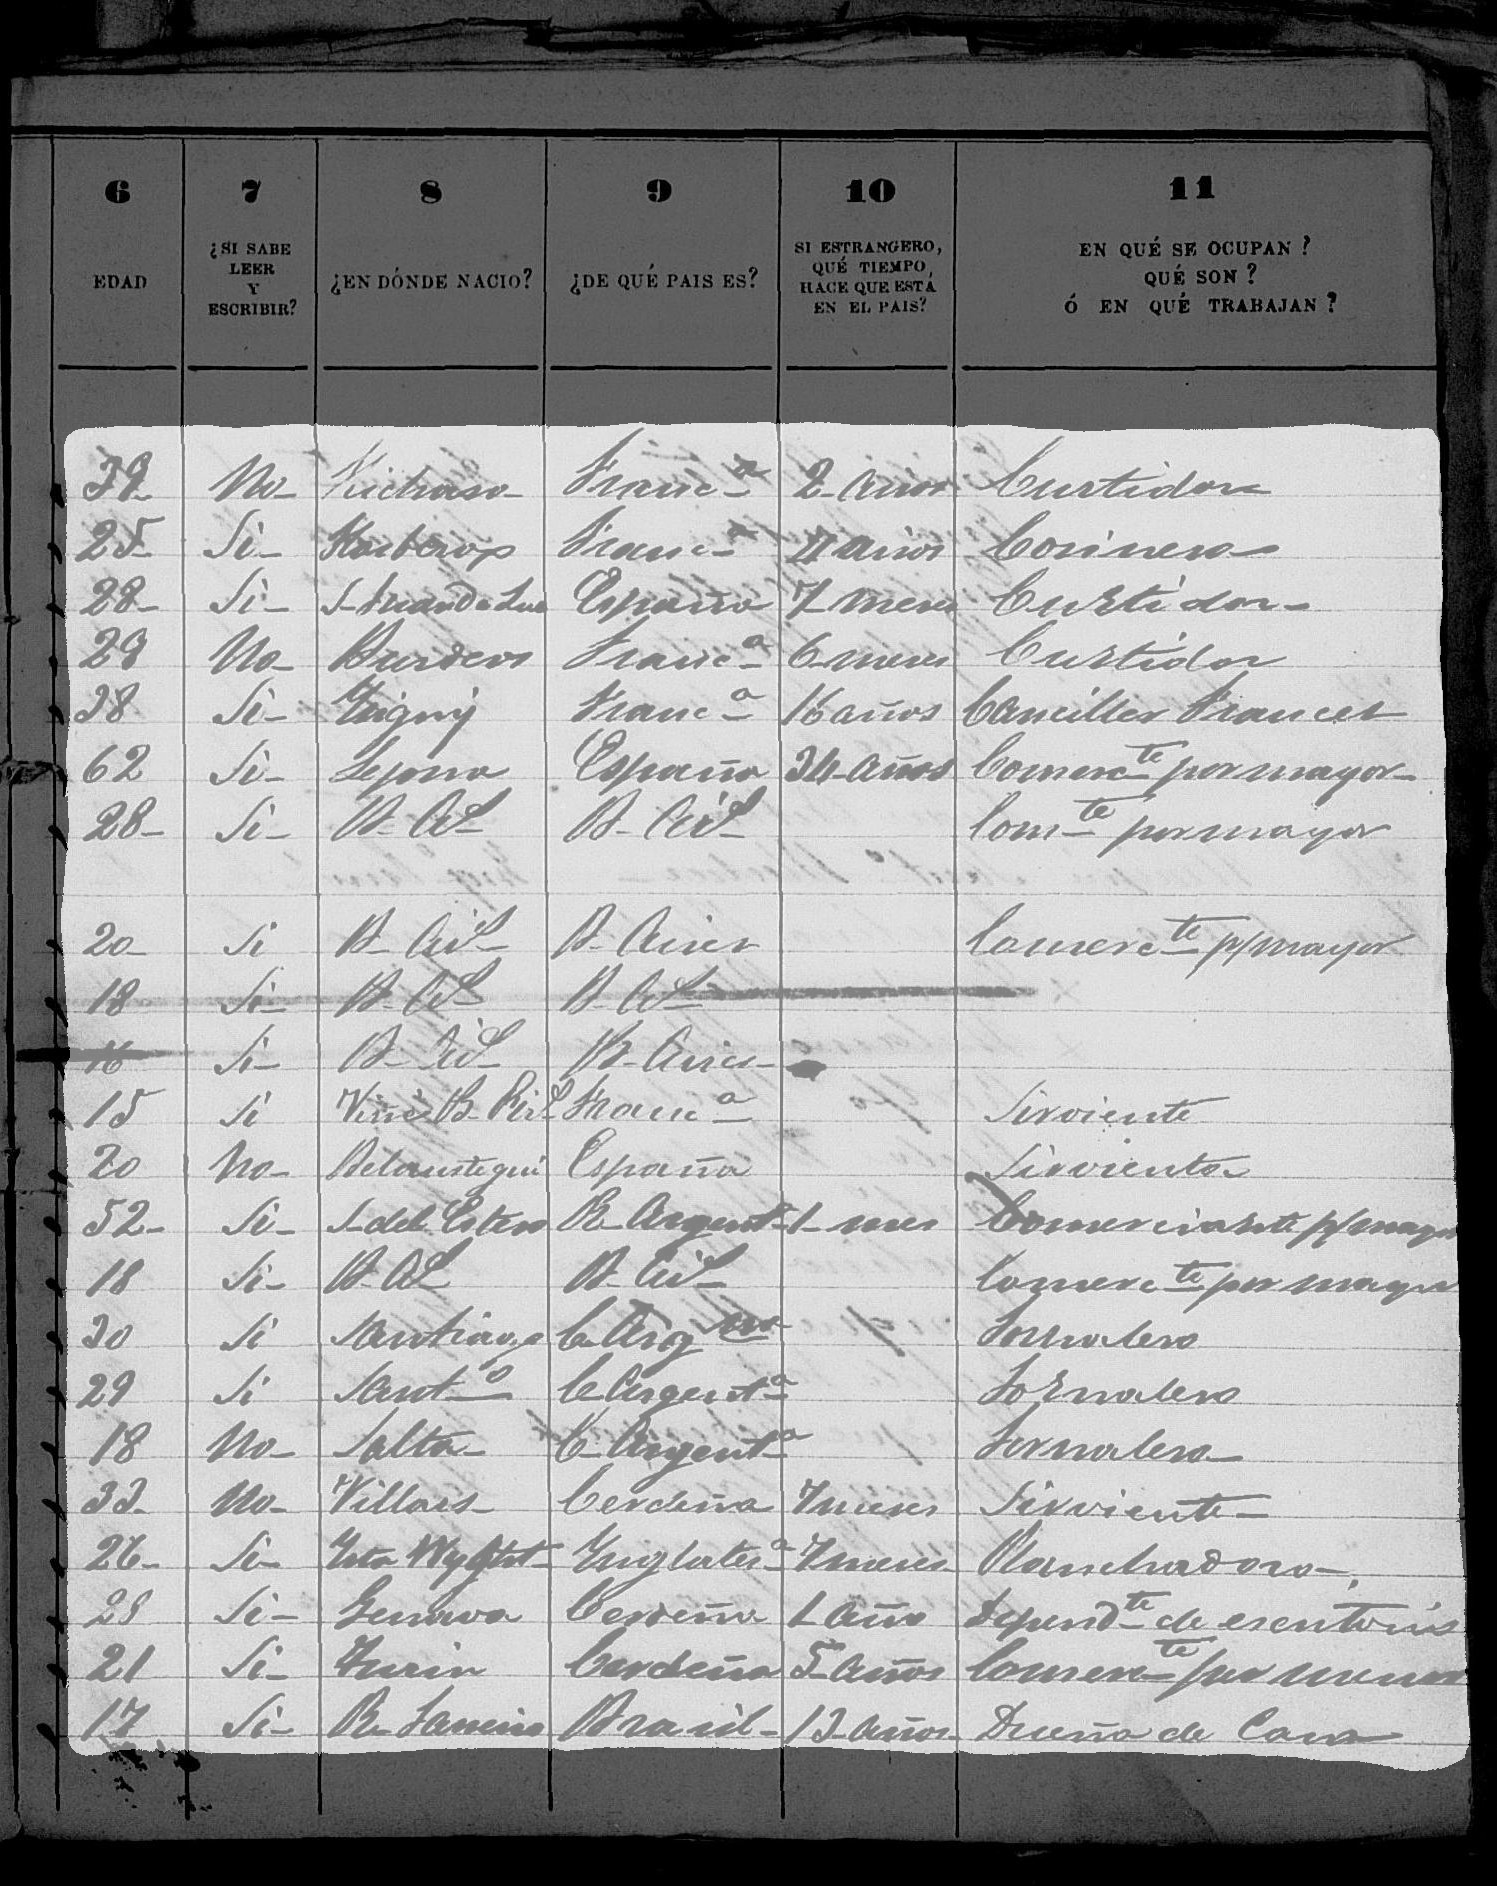 6 7 8 9 10 11
EDAD ¿SI SABE LEER Y ESCRIBIR? ¿EN DÓNDE NACIO? ¿DE QUÉ PAIS ES? SI ESTRANGERO, QUÉ TIEMPO, HACE QUE ESTÁ EN EL PAIS? EN QUÉ SE OCUPAN? QUÉ SON? Ó EN QUÉ TRABAJAN?
39 No Franc-a 2 años Curtidor
25 Si Franc-a años Cosinero
28 Si S Juan de Luz España 7 meses Curtidor
29 No Burdeos Franc-a 6 meses Curtidor
38 Si Franc-a 16 años Canciller Frances
62 Si España 34 años Comerc-te por mayor
28 Si B- As- B- Ais- Com-te por mayor
20 Si B- Ais- B- Aires Comerc-te p/mayor
18 Si B- As- B- As-
16 Si B- Ais- B- Aires
15 Si Franc-a Sirviente
20 No Belaustegui España Sirvienta
52 Si S- del Estero R- Argent-a 1 mes Comerciante p/mayor
18 Si B- As- B- Ais- Comerc-te por mayor
30 Si Santiago C- Arg-na Jornalero
29 Si Sant-o C- Argent-a Jornalero
18 No Salta C- Argent-a Jornalero
33 No Villars Cerdeña 7 meses Sirviente
26 Si Inglater-a 7 meses Planchadora
28 Si Genova Cerdeña 1 año Depend-te de escritorio
21 Si Turin Cerdeña 5 años Comerc-te por menor
17 Si R- Janeiro Brasil 13 años Dueña de Casa